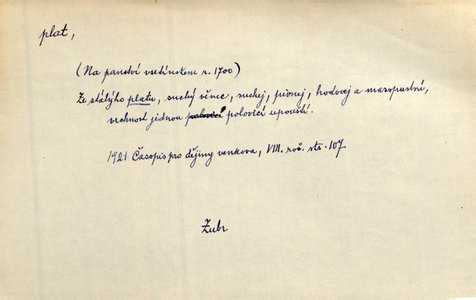 plat,
(Na panství vsetínském r. 1700)
Ze stálýho platu, suchý věnce, suchej, pivnej, hodovej a masopustní,
vrchnost jednou polovicí polovicí upouští.
1921 Časopis pro dějiny venkova, VIII. roč. str. 107
Zubr